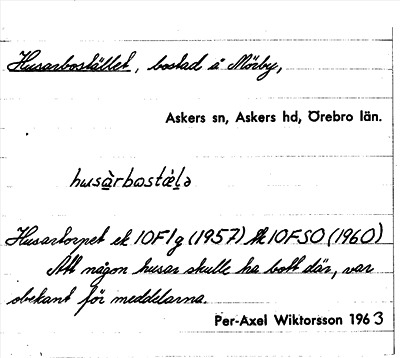 Husarbostället, bostad å Mörby,
Askers sn, Askers hd, Örebro län.
husàrbostǽlə
Husartorpet ek 10F1g (1957) 10FSO (1960)
Att någon husar skulle ha bott där, var
obekant för meddelarna.
Per-Axel Wiktorsson 1963